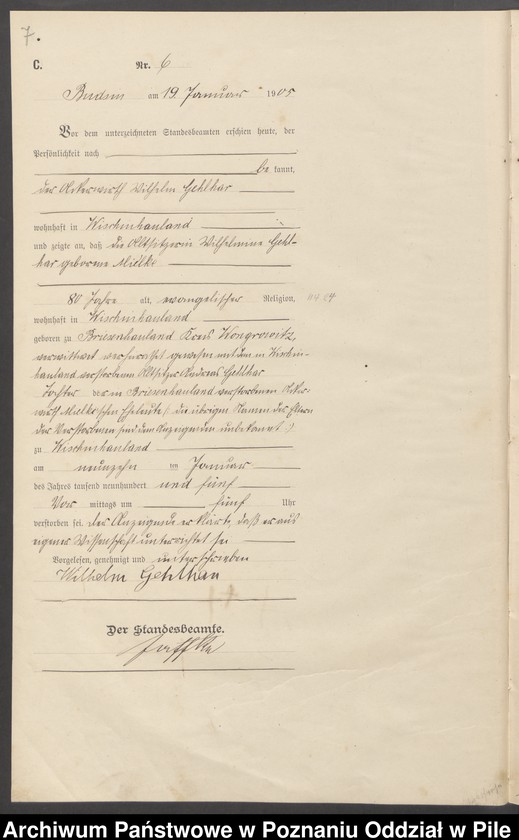 7.
C. Nr. 6
Budsin am 19 Januar 1905
Vor dem unterzeichneten Standesbeamten erschien heute, der
Persönlichkeit nach
be kannt,
der Ackerwirth Wilhelm Gehlhar
wohnhaft in
und zeigte an, daß die Altsitzerin Wilhelmine Gehl-
har geborene Mielke
80 Jahre alt, evangelischer Religion,
wohnhaft in
geboren zu Briesenhauland Kreis Wongrowitz,
verwittwet verheirathet gewesen mit dem in
hauland verstorbenen Altsitzer Andreas Gehlhar
Tochter der in Briesenhauland verstorbenen Acker-
wirth Mielke'schen Eheleute (: die übrigen Namen der Eltern
der Verstorbenen sind dem Anzeigenden unbekannt :)
zu
am neunzehn ten Januar
des Jahres tausend neunhundert und fünf
Vor mittags um fünf Uhr
verstorben sei. Der Anzeigende erklärte, daß er aus
eigener Wissenschaft unterrichtet sei
Vorgelesen, genehmigt und unterschrieben
Wilhelm Gehlhar
Der Standesbeamte.
Archiwum Państwowe w Poznaniu Oddział w Pile